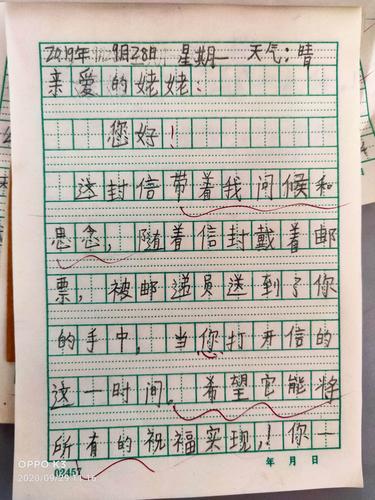 2019年9月28日 星期一 天气：晴
亲爱的姥姥：
您好！
这封信带着我问候和
思念，随着信封戴着邮
票，被邮递员送到了你
的手中，当你打开信的
这一时间。希望它能将
所有的祝福实现，！你一
02457 年 月 日
OPPO K3
2020/09/29 11:16